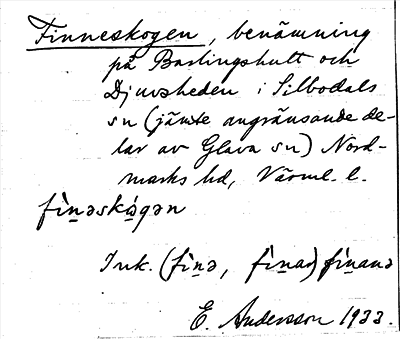 Finneskogen, benämning
på Barlingshult och
Djuvsheden i Silbodals
sn (jämte angränsande de-
lar av Glava sn) Nord-
marks hd, Värml. l.
fìn̲əskó̲gən
Ink. (fìn̲ə, fìn̲ar) fìn̲anə
E. Andersson 1933.